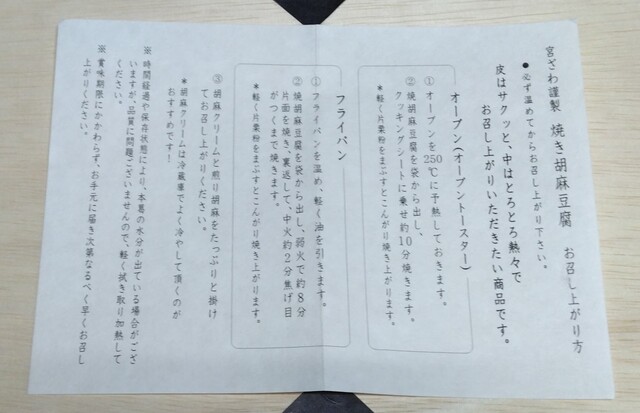 宮ざわ謹製 焼き胡麻豆腐 お召し上がり方
●必ず温めてからお召し上がり下さい。
皮はサクッと、中はとろとろ熱々で
お召し上がりいただきたい商品です。
オーブン(オーブントースター)
①オーブンを250℃に予熱しておきます。
②焼胡麻豆腐を袋から出し、
クッキングシートに乗せ約10分焼きます。
*軽く片栗粉をまぶすとこんがり焼き上がります。
フライパン
①フライパンを温め、軽く油を引きます。
②焼胡麻豆腐を袋から出し、弱火で約8分
片面を焼き、裏返して、中火約2分焦げ目
がつくまで焼きます。
*軽く片栗粉をまぶすとこんがり焼き上がります。
③胡麻クリームと煎り胡麻をたっぷりと掛け
てお召し上がりください。
*胡麻クリームは冷蔵庫でよく冷やして頂くのが
おすすめです!
※時間経過や保存状態により、本葛の水分が出ている場合がござ
いますが、品質に問題ございませんので、軽く拭き取り加熱して
ください。
※賞味期限にかかわらず、お手元に届き次第なるべく早くお召し
上がりください。